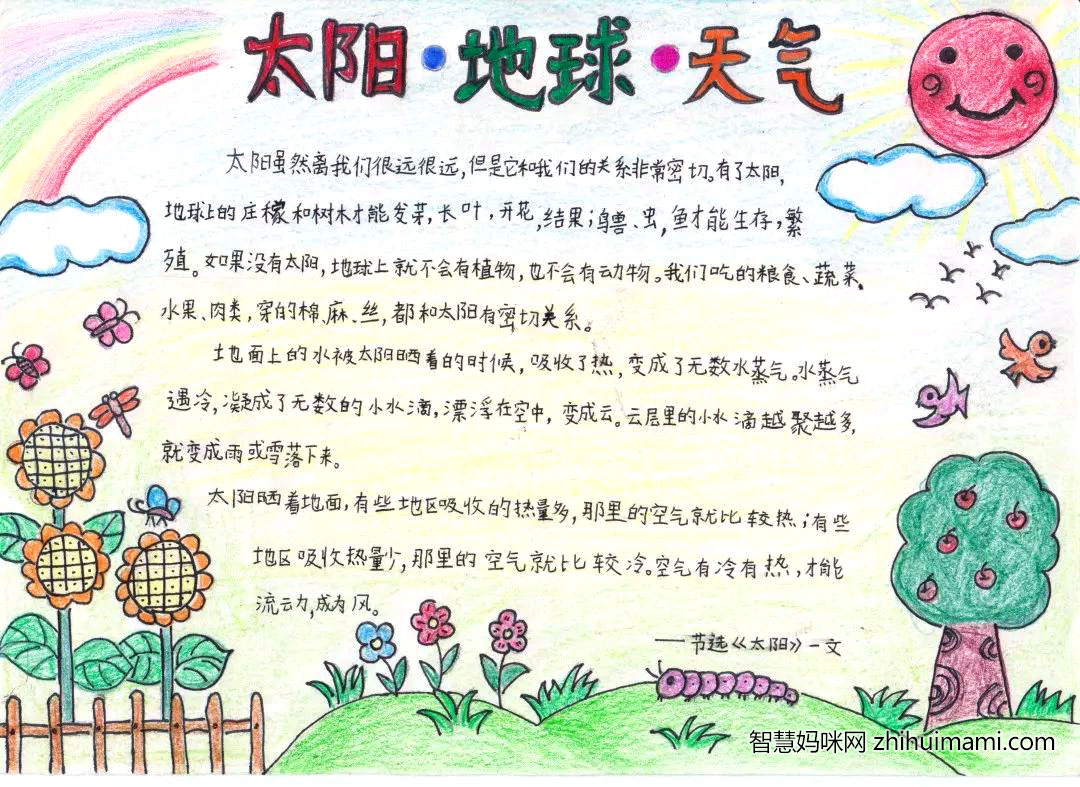 太阳·地球·天气
太阳虽然离我们很远很远,但是它和我们的关系非常密切。有了太阳,
地球上的庄稼和树木才能发芽,长叶,开花,结果;鸟兽、虫,鱼才能生存,繁
殖。如果没有太阳,地球上就不会有植物,也不会有动物。我们吃的粮食、蔬菜、
水果、肉类,穿的棉、麻、丝,都和太阳有密切关系。
地面上的水被太阳晒着的时候,吸收了热,变成了无数水蒸气。水蒸气
遇冷,凝成了无数的小水滴,漂浮在空中,变成云。云层里的小水滴越聚越多,
就变成雨或雪落下来。
太阳晒着地面,有些地区吸收的热量多,那里的空气就比较热;有些
地区吸收热量少,那里的空气就比较冷。空气有冷有热,才能
流动,成为风。
——节选《太阳》一文
智慧妈咪网 zhihuimami.com